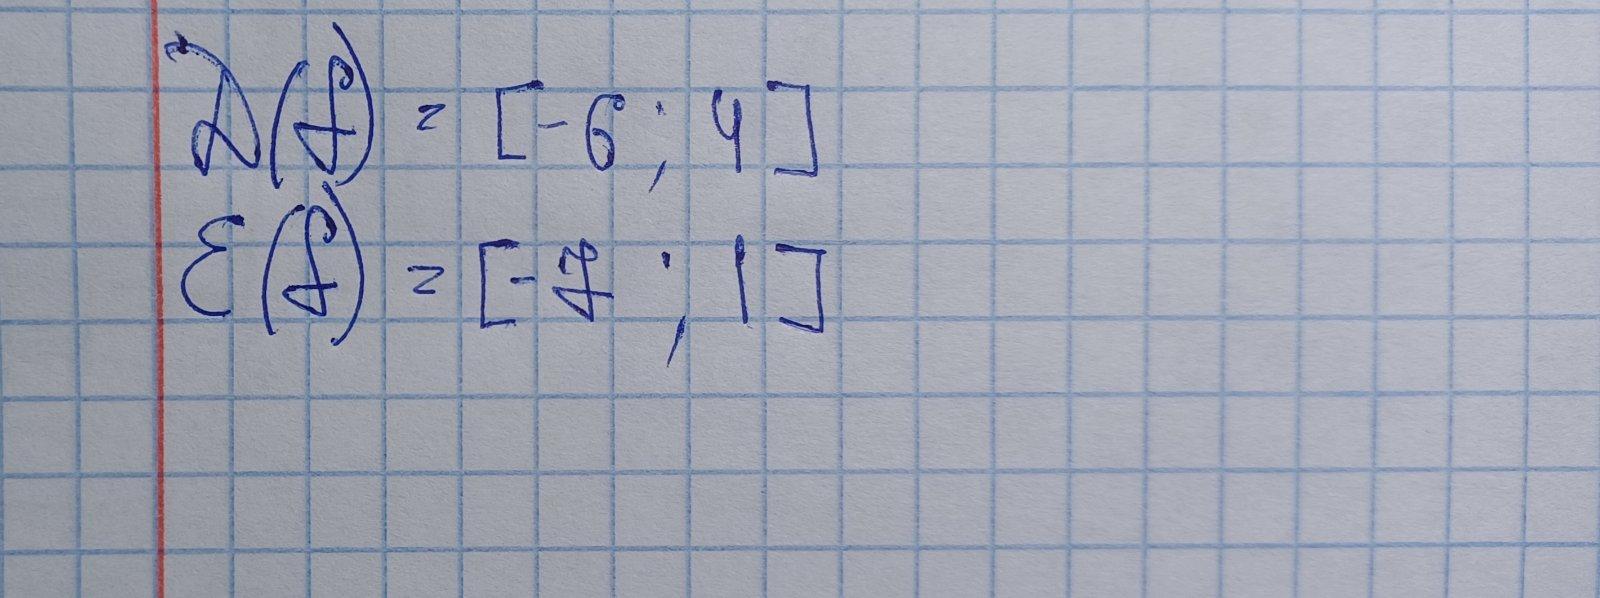 D(f) = [-6; 4]
E(f) = [-7; 1]